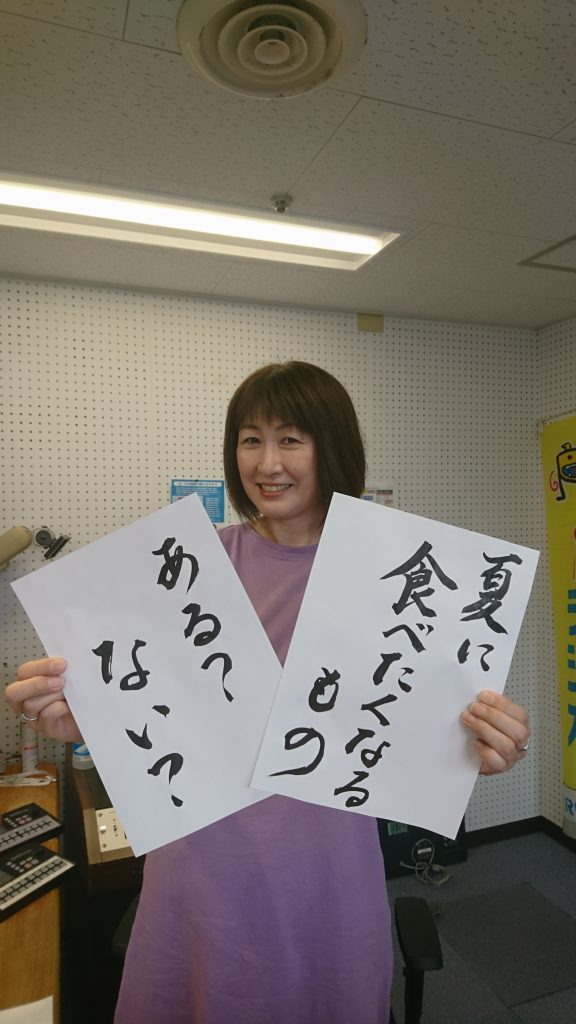 夏に
食べたくなる
もの
ある?
ない?